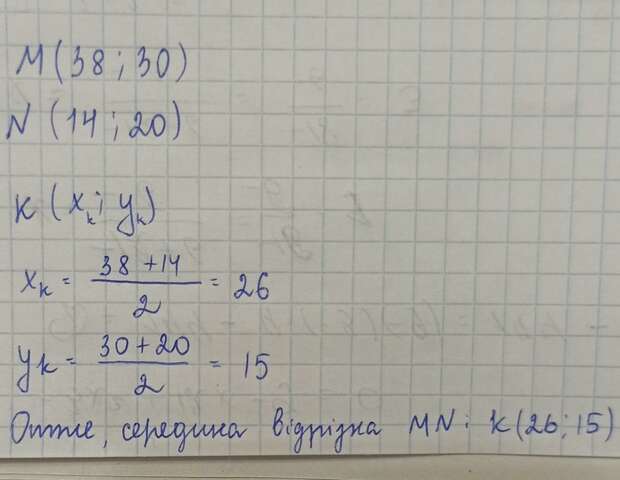 M(38;30)
N(14;20)
K(xₖ; yₖ)
xₖ = (38+14)/2 = 26
yₖ = (30+20)/2 = 15
Отже, середина відрізка MN: K(26;15)